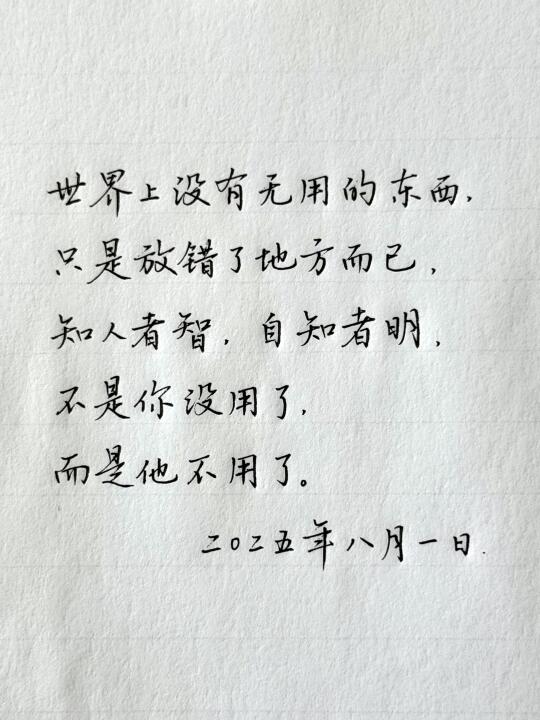 世界上没有无用的东西，
只是放错了地方而已，
知人者智，自知者明，
不是你没用了，
而是他不用了。
二〇二五年八月一日.